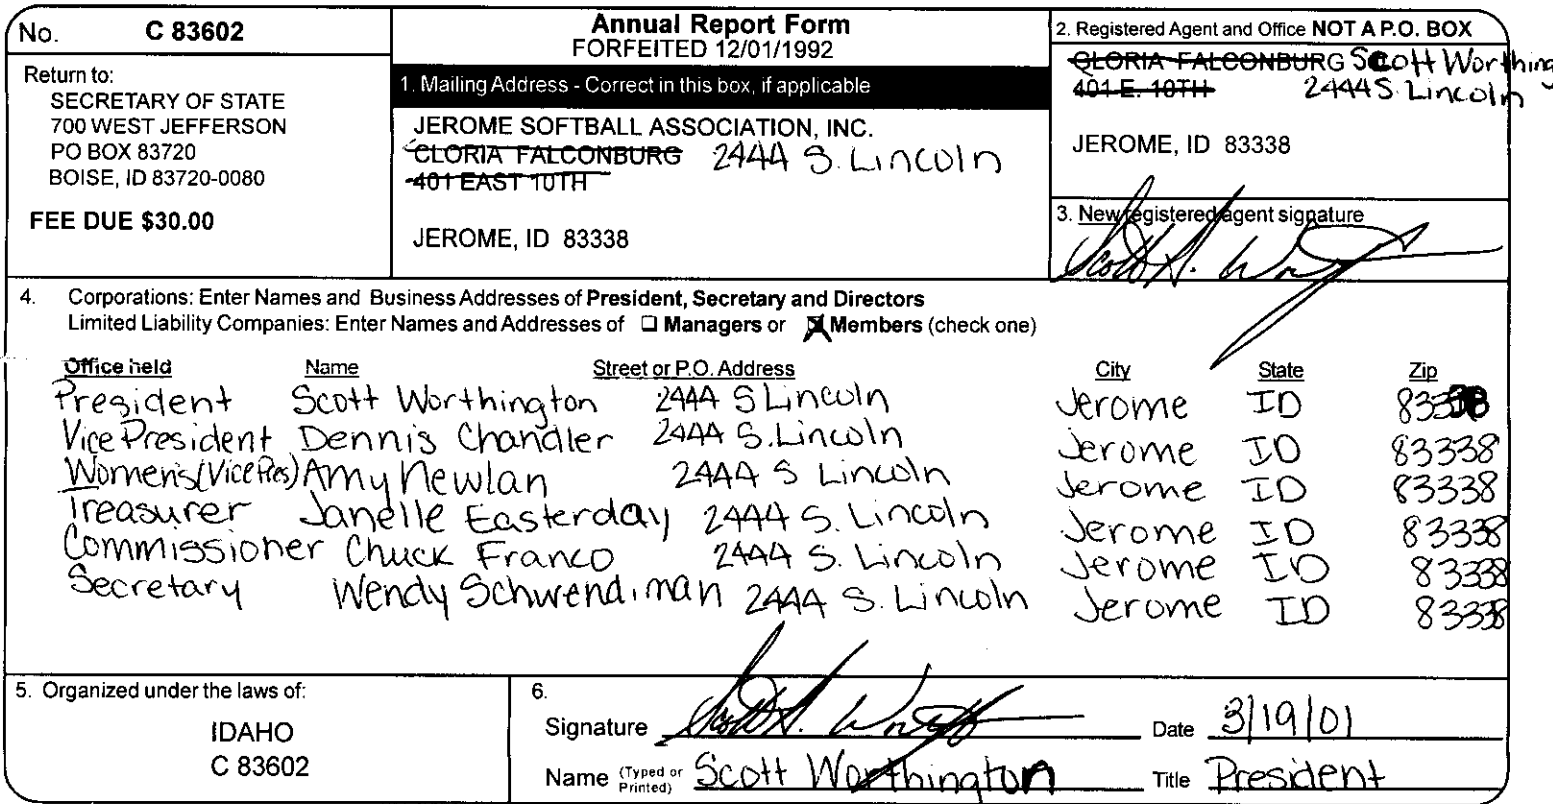 No. C 83602
Return to:
SECRETARY OF STATE
700 WEST JEFFERSON
PO BOX 83720
BOISE, ID 83720-0080
FEE DUE $30.00
Annual Report Form
FORFEITED 12/01/1992
1. Mailing Address - Correct in this box, if applicable
JEROME SOFTBALL ASSOCIATION, INC.
CLORIA FALCONBURG 2444 S. Lincoln
401 EAST 10TH
JEROME, ID 83338
2. Registered Agent and Office NOT A P.O. BOX
GLORIA FALCONBURG Scott Worthing
401 E. 10TH 2444 S. Lincoln
JEROME, ID 83338
3. New registered agent signature
Scott A.
4. Corporations: Enter Names and Business Addresses of President, Secretary and Directors
Limited Liability Companies: Enter Names and Addresses of ☐ Managers or ☒ Members (check one)
Office held Name Street or P.O. Address City State Zip
President Scott Worthington 2444 S Lincoln Jerome ID 83338
Vice President Dennis Chandler 2444 S. Lincoln Jerome ID 83338
Women's (Vice Pres) Amy Newlan 2444 S Lincoln Jerome ID 83338
Treasurer Janelle Easterday 2444 S. Lincoln Jerome ID 83338
Commissioner Chuck Franco 2444 S. Lincoln Jerome ID 83338
Secretary Wendy Schwendiman 2444 S. Lincoln Jerome ID 83338
5. Organized under the laws of:
IDAHO
C 83602
6.
Signature Scott A. Date 3/19/01
Name (Typed or Printed) Scott Worthington Title President